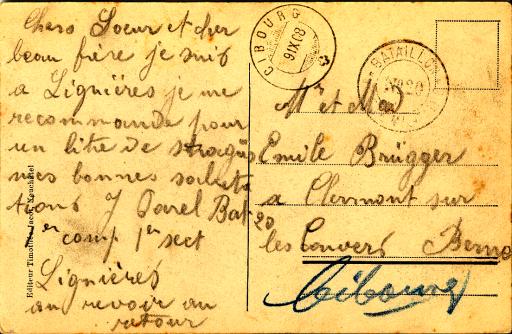 Chers Soeur et cher
beau frère je suis
a Lignières je me
recommande pour
un litre de
mes bonnes saluta
tions J Parel Bat 20
1er comp 1er sect
Lignières
au revoir au
retour
CIBOURG
9 IX 08
BATAILLON
No 20
Mr et Mad
Emile Brügger
a Clermont sur
les Convers Berne
Cibourg
Editeur Timothée Jacot, Neuchâtel